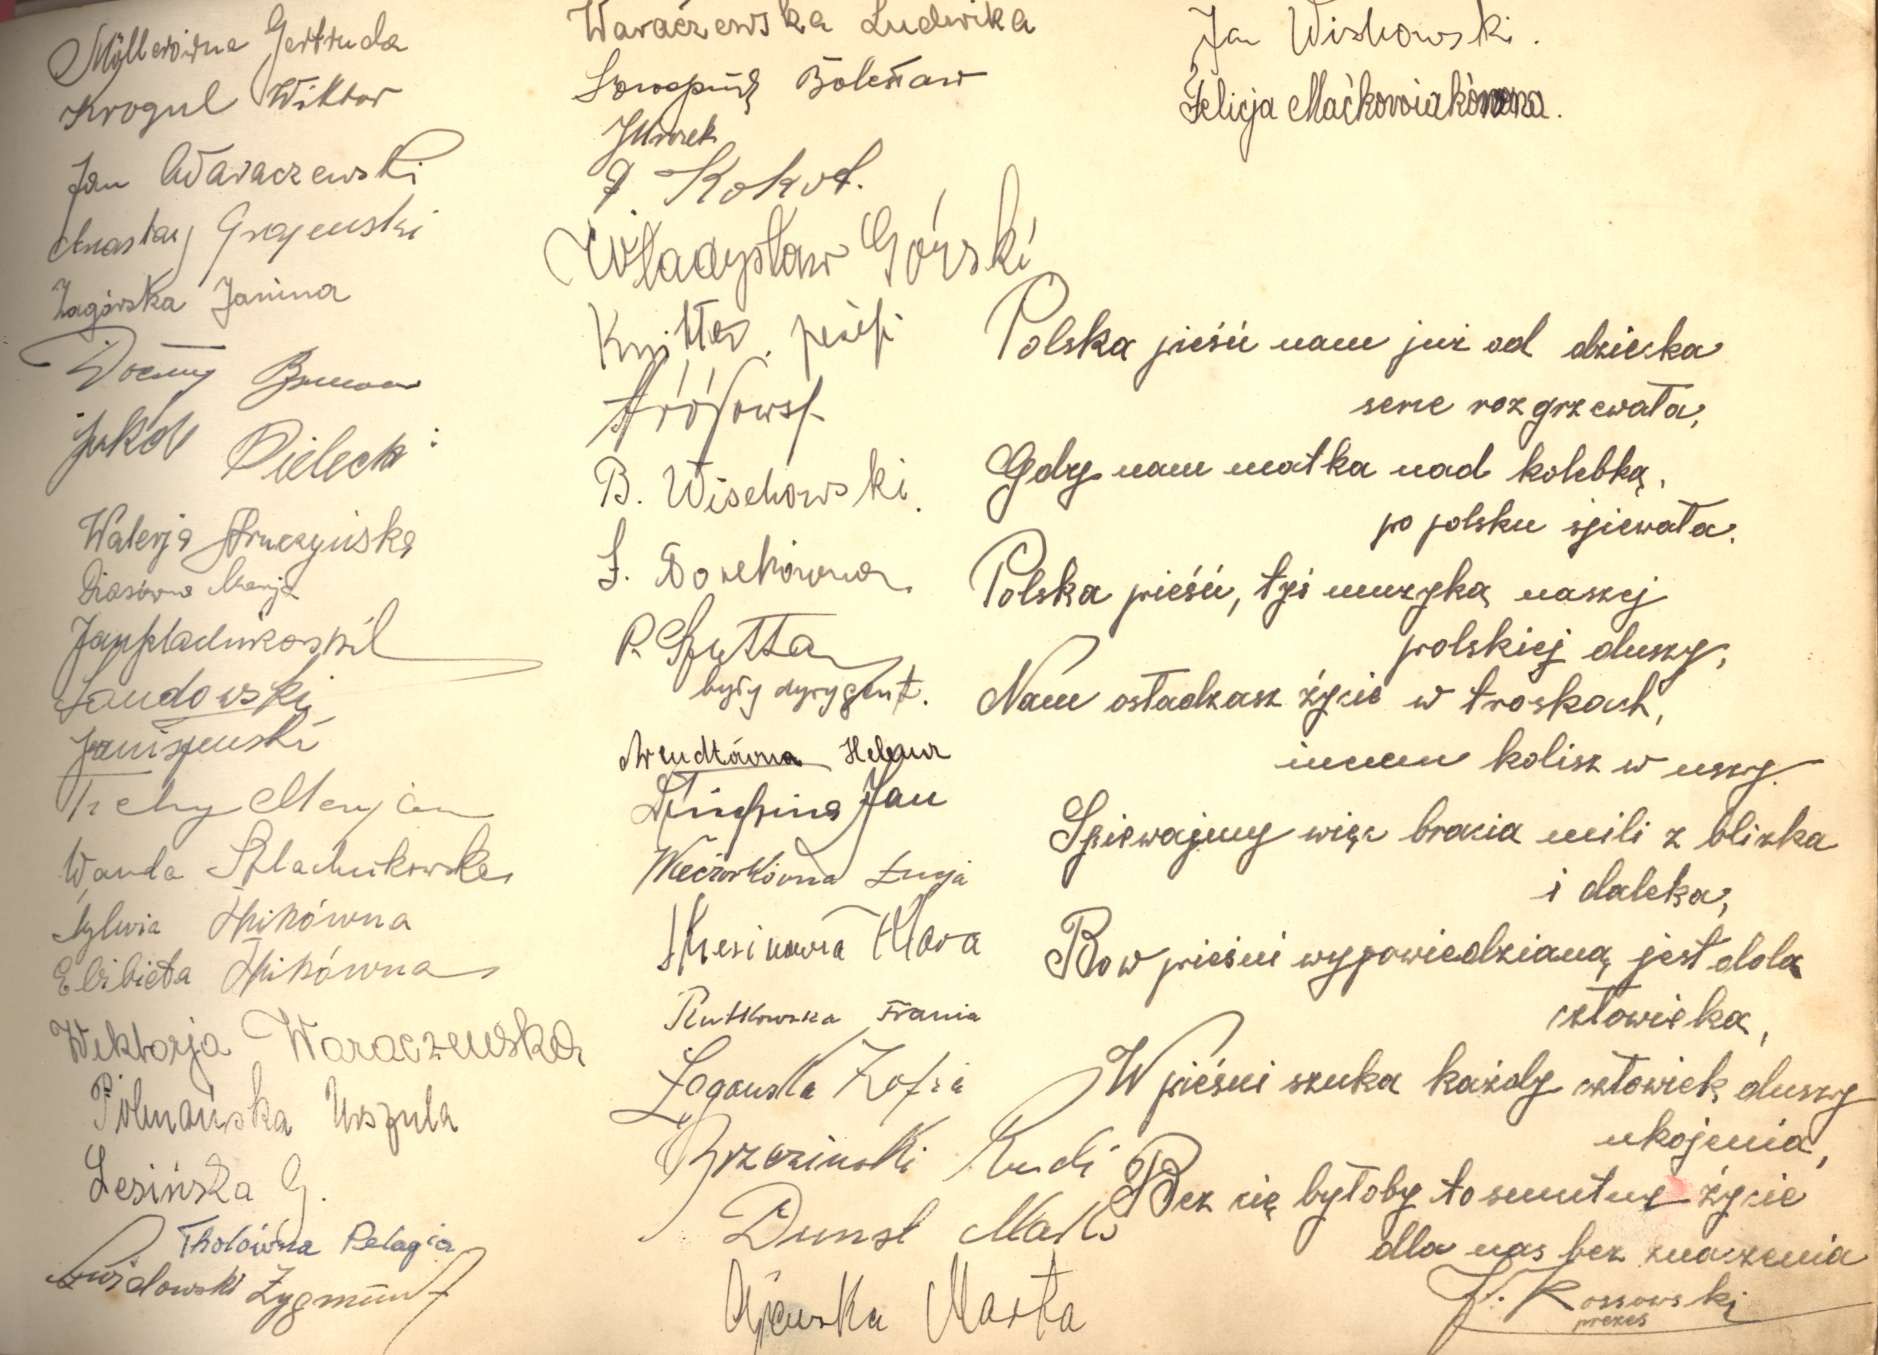 Müllerówna Gertruda
Krogul Wiktor
Jan Waraczewski
Anastazy Grajewski
Zagórska Janina
Jakób Pielecki
Walerja
Maryja
Landowski
Tichy Maryjan
Wanda Szlachcikowska
Sylwia Thikówna
Elżbieta Thikówna
Wiktorja Waraczewska
Pólmańska Urszula
Lesińska G.
Tholówna Pelagia
Świdowski Zygmunt
Waraczewska Ludwika
Bolesław
J Mrozek
J Kokot.
Władysław Górski
B. Wischowski.
P. Spytta
były dyrygent.
Arendtówna Helena
Jan
Wieczorkówna Łucja
Klara
Rutkowska Frania
Zofia
Brzeziński Rudi
Dunst Maks
Marta
Jan Wishowski.
Felicja Maćkowiakówna.
Polska pieśń nam już od dziecka
serce rozgrzewała,
Gdy nam matka nad kolebką,
po polsku śpiewała.
Polska pieśń, tyś muzyką naszej
polskiej duszy,
Nam osładzasz życie w troskach,
innem kolisz w uszy.
Śpiewajmy więc bracia mili z blizka
i daleka,
Bo w pieśni wypowiedzianą jest dola
człowieka,
W pieśni szuka każdy człowiek duszy
ukojenia,
Bez cię byłoby to smutne życie
dla nas bez znaczenia
Kossowski
prezes